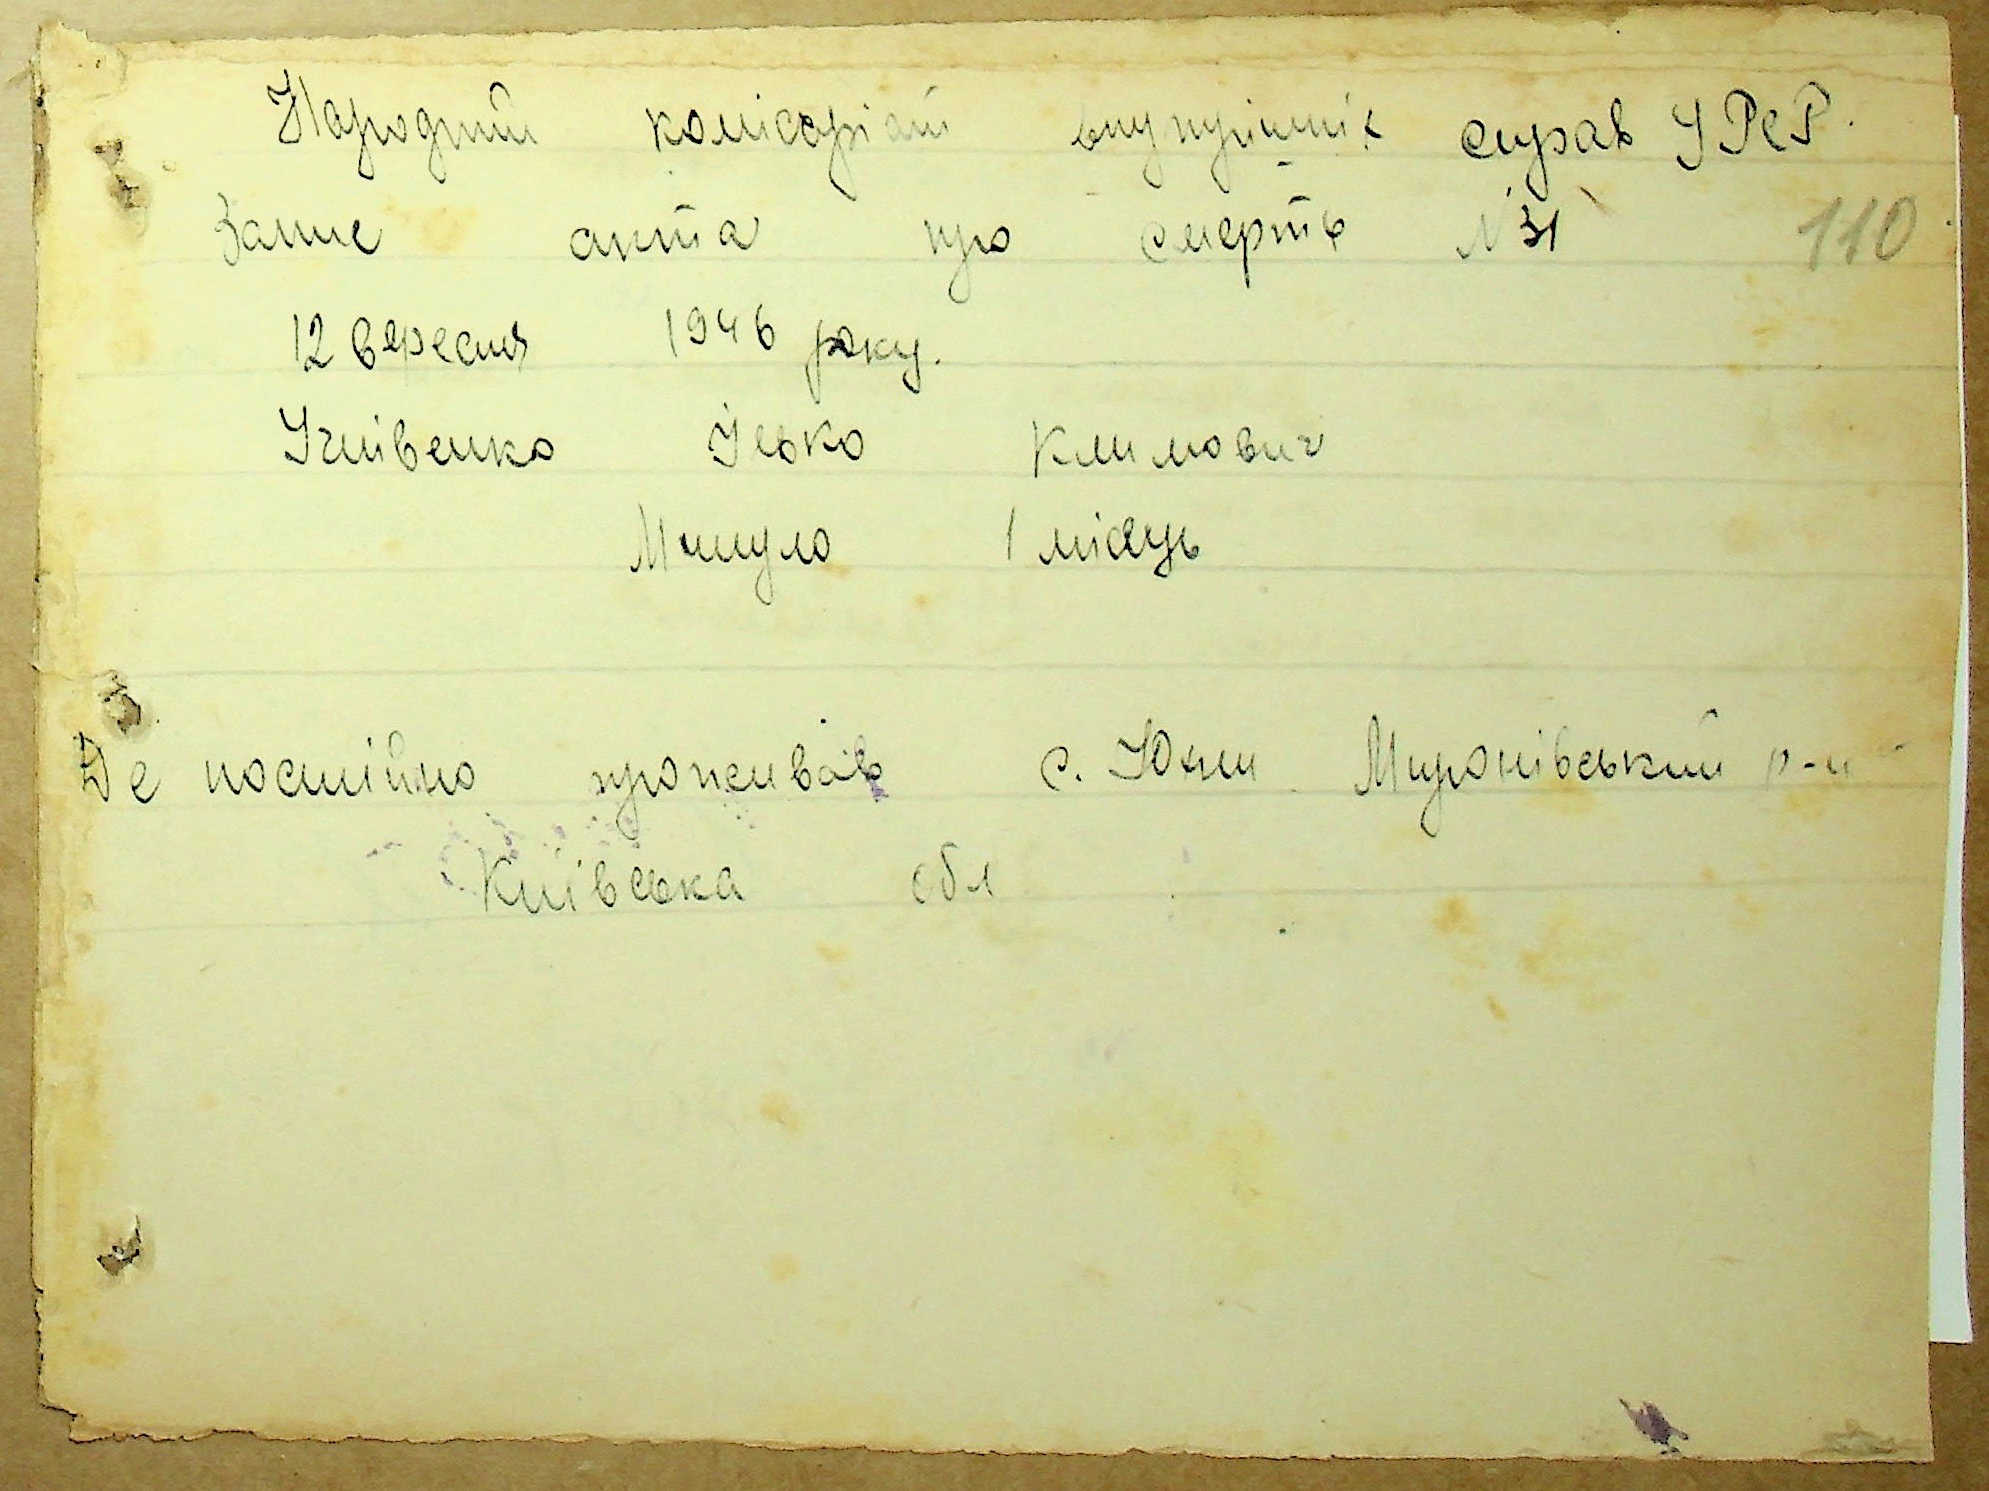 Народний комісаріат внутрішніх справ УРСР.
Запис акта про смерть N 31
110
12 вересня 1946 року.
Ілько Климович
Минуло 1 місяць
Де постійно проживав с. Юхни Миронівський р-н
Київська обл